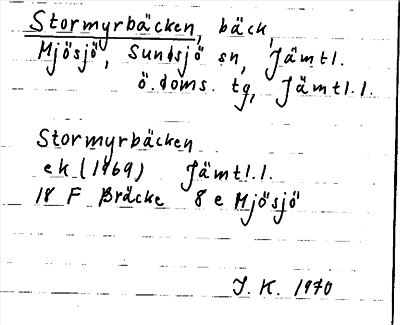 Stormyrbäcken, bäck,
Mjösjö, Sundsjö sn, Jämtl.
ö. doms. tg, Jämtl.l.
Stormyrbäcken
ek (1969) Jämtl.l.
18 F Bräcke 8 e Mjösjö
J. K. 1970